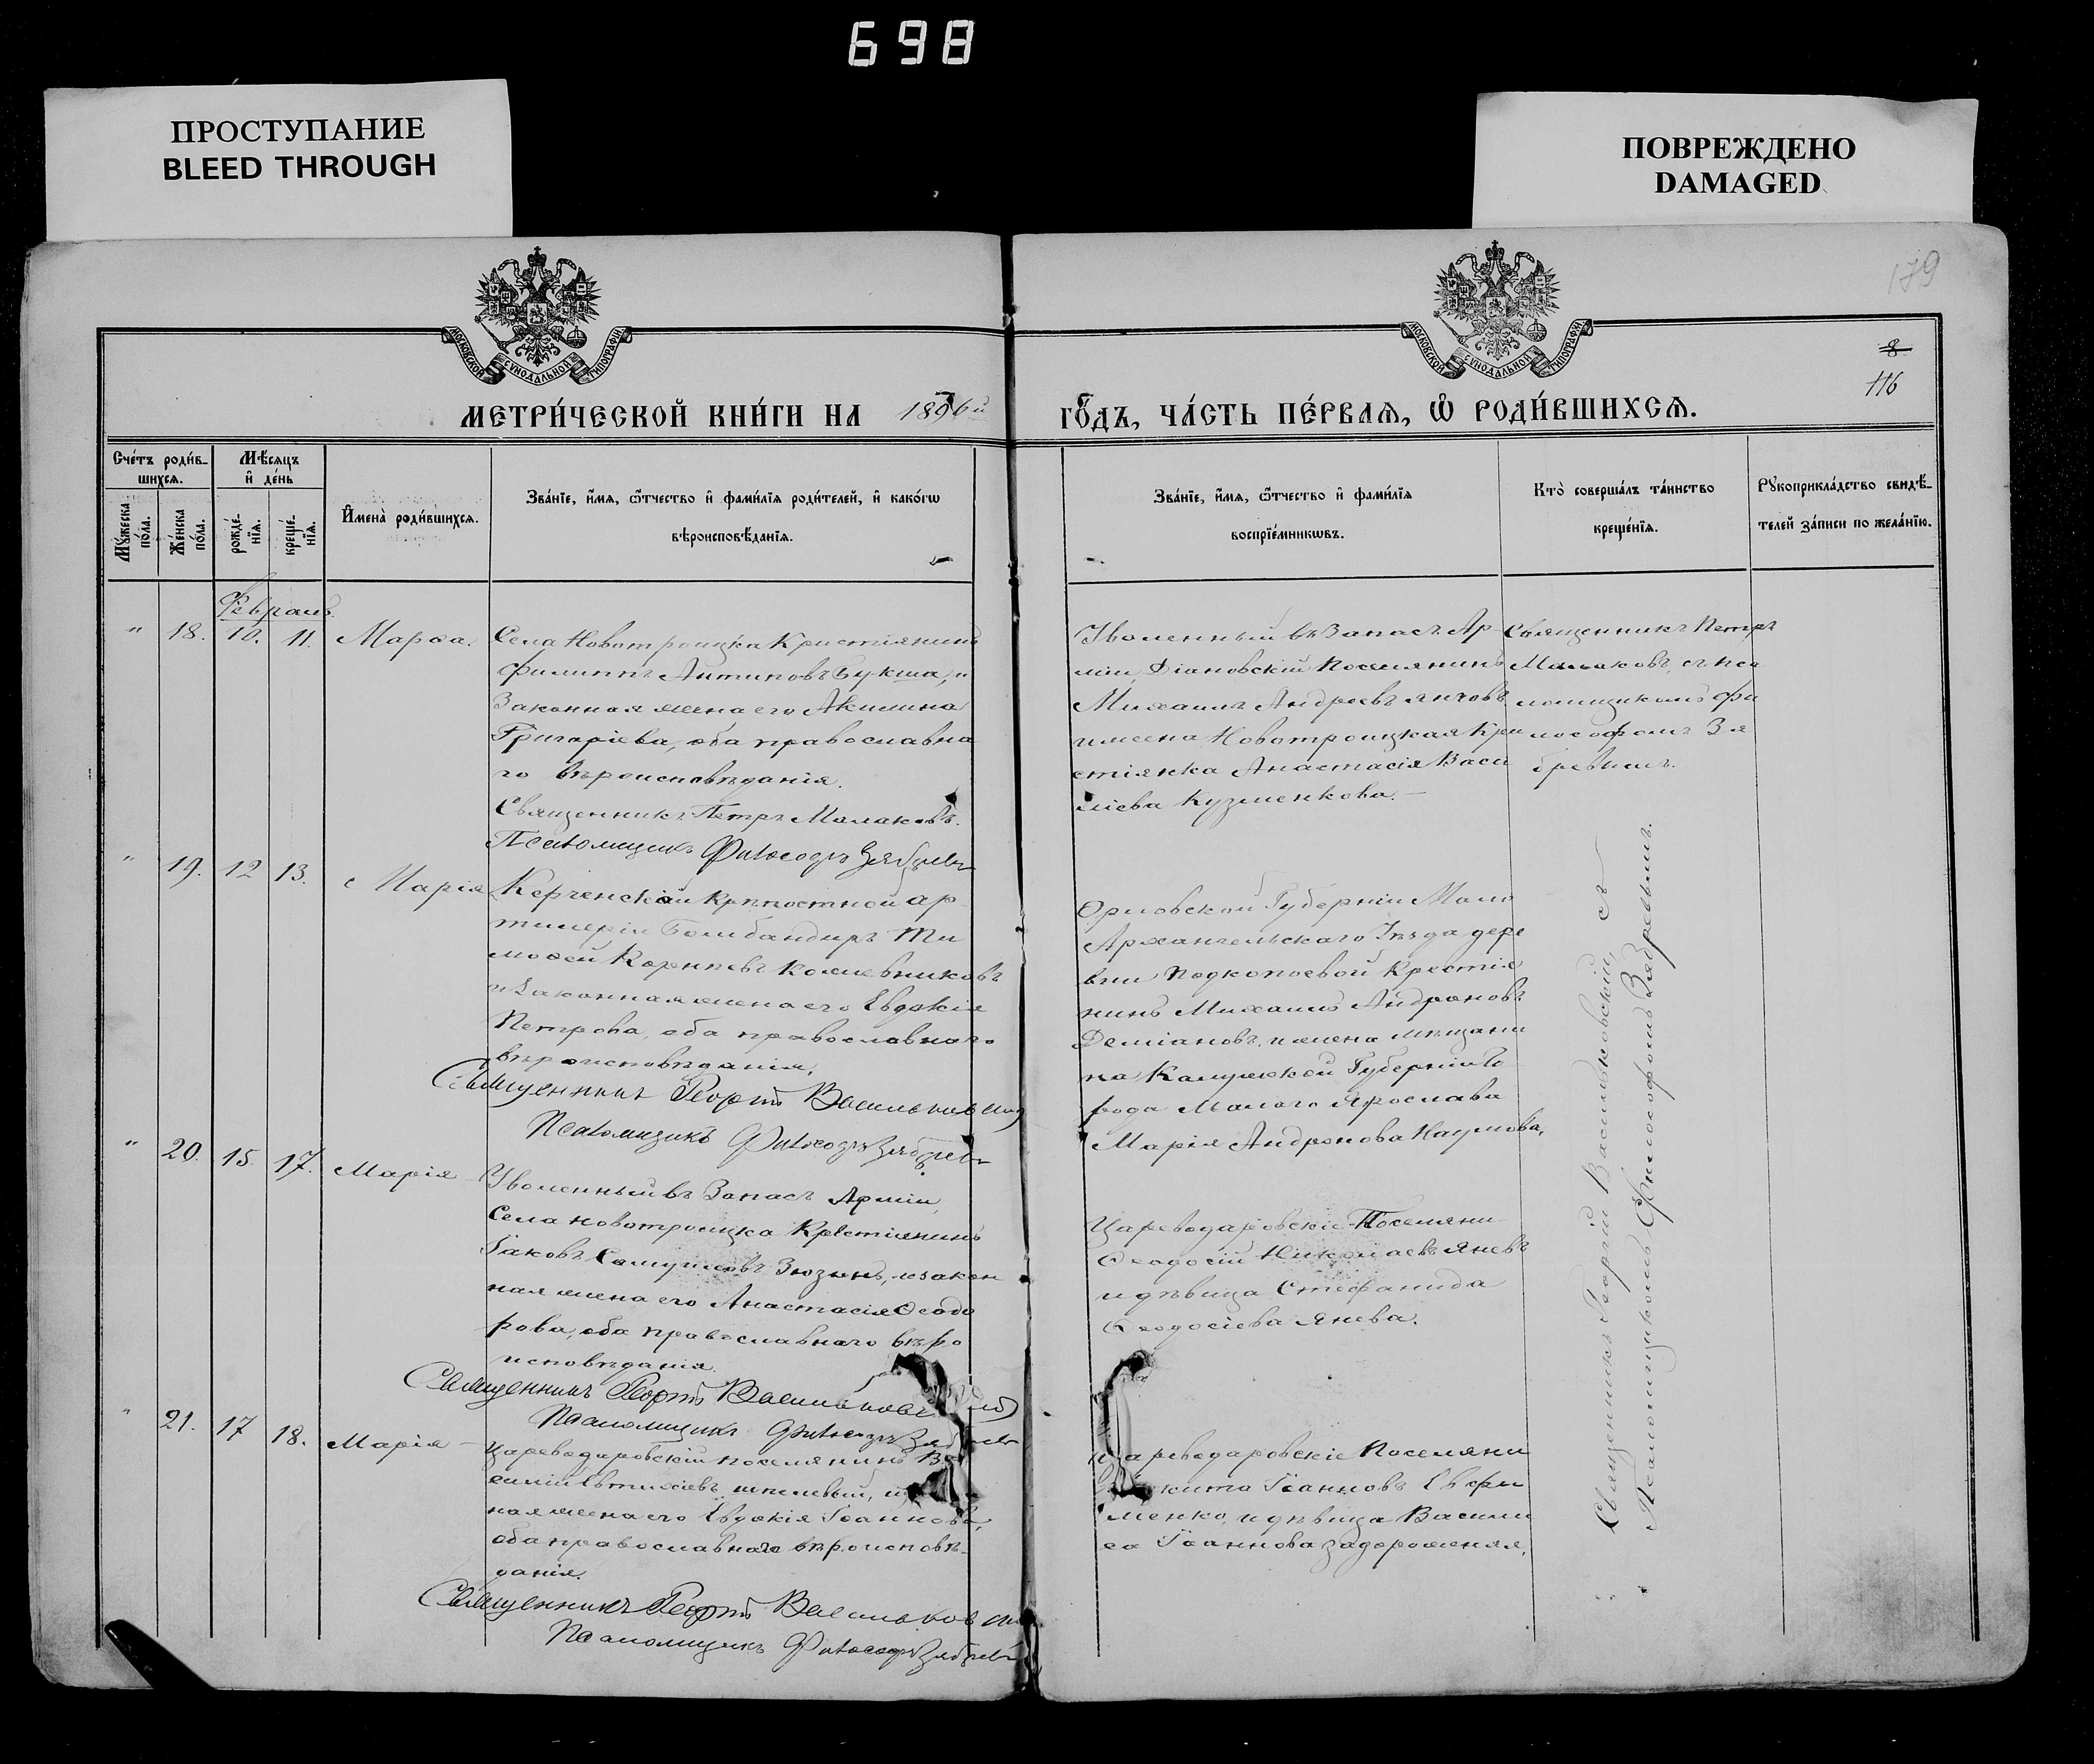 698
ПРОСТУПАНИЕ
BLEED THROUGH
ПОВРЕЖДЕНО
DAMAGED
179
МОСКОВСКОЙ СУНОДАЛЬНОЙ ТИПОГРАФІИ
МОСКОВСКОЙ СУНОДАЛЬНОЙ ТИПОГРАФІИ
8
116
МЕТРИ́ЧЕСКОЙ КНИ́ГИ НА 1896й ГО́ДЪ, ЧА́СТЬ ПЕ́РВАѦ, Ѽ РОДИ́ВШИХСѦ.
Сче́тъ роди́в-
шихсѧ.
Мѣ́сѧцъ
и҆ де́нь
Мꙋ́жеска по́ла.
Же́нска по́ла.
рожде́-нїѧ.
креще́-нїѧ.
И҆мена̀ роди́вшихсѧ.
Зва́нїе, и҆́мѧ, ѻ҆́тчество и҆ фами́лїѧ роди́телей, и҆ како́гѡ
вѣроисповѣ́данїѧ.
Зва́нїе, и҆́мѧ, ѻ҆́тчество и҆ фами́лїѧ
воспрїе́мникѡвъ.
Кто̀ соверша́лъ та́инство
креще́нїѧ.
Рꙋкоприкла́дство свидѣ́-
телей за́писи по жела́нїю.
Февраль
" 18. 10. 11. Марѳа.
Села Новотроицка Кристіянинъ
Филиппъ Антиповъ Букша, и
Законная жена его Акилина
Григоріева, оба православна
го вѣроисповѣданія.
Священникъ Петръ Малаковъ.
Псаломщикъ Философъ Зябревъ
Уволенный въ Запасъ Ар
міи, Діановскій Поселянинъ
Михаилъ Андреевъ Янчовъ
и жена Новотроицкая Кри
стіянка Анастасія Васи
ліева Кузменкова.
Священникъ Петръ
Малаковъ, съ пса
ломщикомъ Фи
лософомъ Зя
бревымъ.
" 19. 12 13. Марія
Керченской Крѣпостной ар
тилеріи Бомбандиръ Ти
моѳей Карпевъ Кожевниковъ
и Законная жена его Евдокія
Петрова, оба православнаго
вѣроисповѣданія,
Священникъ Георгій Васильковскій
Псаломщикъ Философъ Зябревъ
Орловской Губерніи Мало
Архангельскаго Уѣзда дере
вни Подкопаевой Крестія
нинъ Михаилъ Андроновъ
Деміановъ, и жена мѣщани
на Калужской Губерніи Го
рода Малаго Ярослава
Марія Андронова Наумова,
" 20. 15. 17. Марія
Уволенный въ Запасъ Арміи,
Села Новотроицка Крестіянинъ
Іаковъ Самуиловъ Зюзинъ, и закон
ная жена его Анастасія Ѳеодо
рова, оба православнаго вѣро
исповѣданія
Священникъ Георгій Васильковскій
Псаломщикъ Философъ Зябревъ
Цареводаровскіе Поселяни
Ѳеодосій Николаевъ Яневъ
и дѣвица Стефанида
Ѳеодосіева Янева.
" 21. 17 18. Марія
Цареводаровскій поселянинъ Ва
силій Евтихіевъ
ная жена его Евдокія Іоаннова,
оба православнаго вѣроисповѣ-
данія.
Священникъ Георгій Васильковскій
Псаломщикъ Философъ Зябревъ
Цареводаровскіе Поселяни
Никита Іоанновъ Евфи
менко, и дѣвица Васили
са Іоаннова Задорожная,
Священникъ Георгій Васильковскій, съ
Псаломщикомъ Философомъ Зябревымъ.